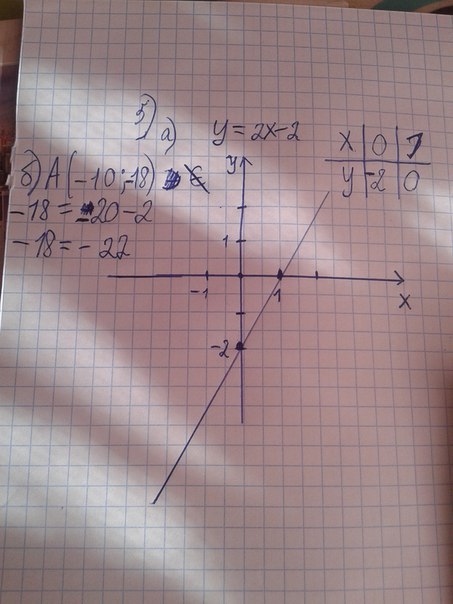 5)
а) y = 2x-2
x | 0 | 1
y | -2 | 0
б) A(-10;-18)
-18 = -20-2
-18 = -22
y
1
-1 1
x
-2